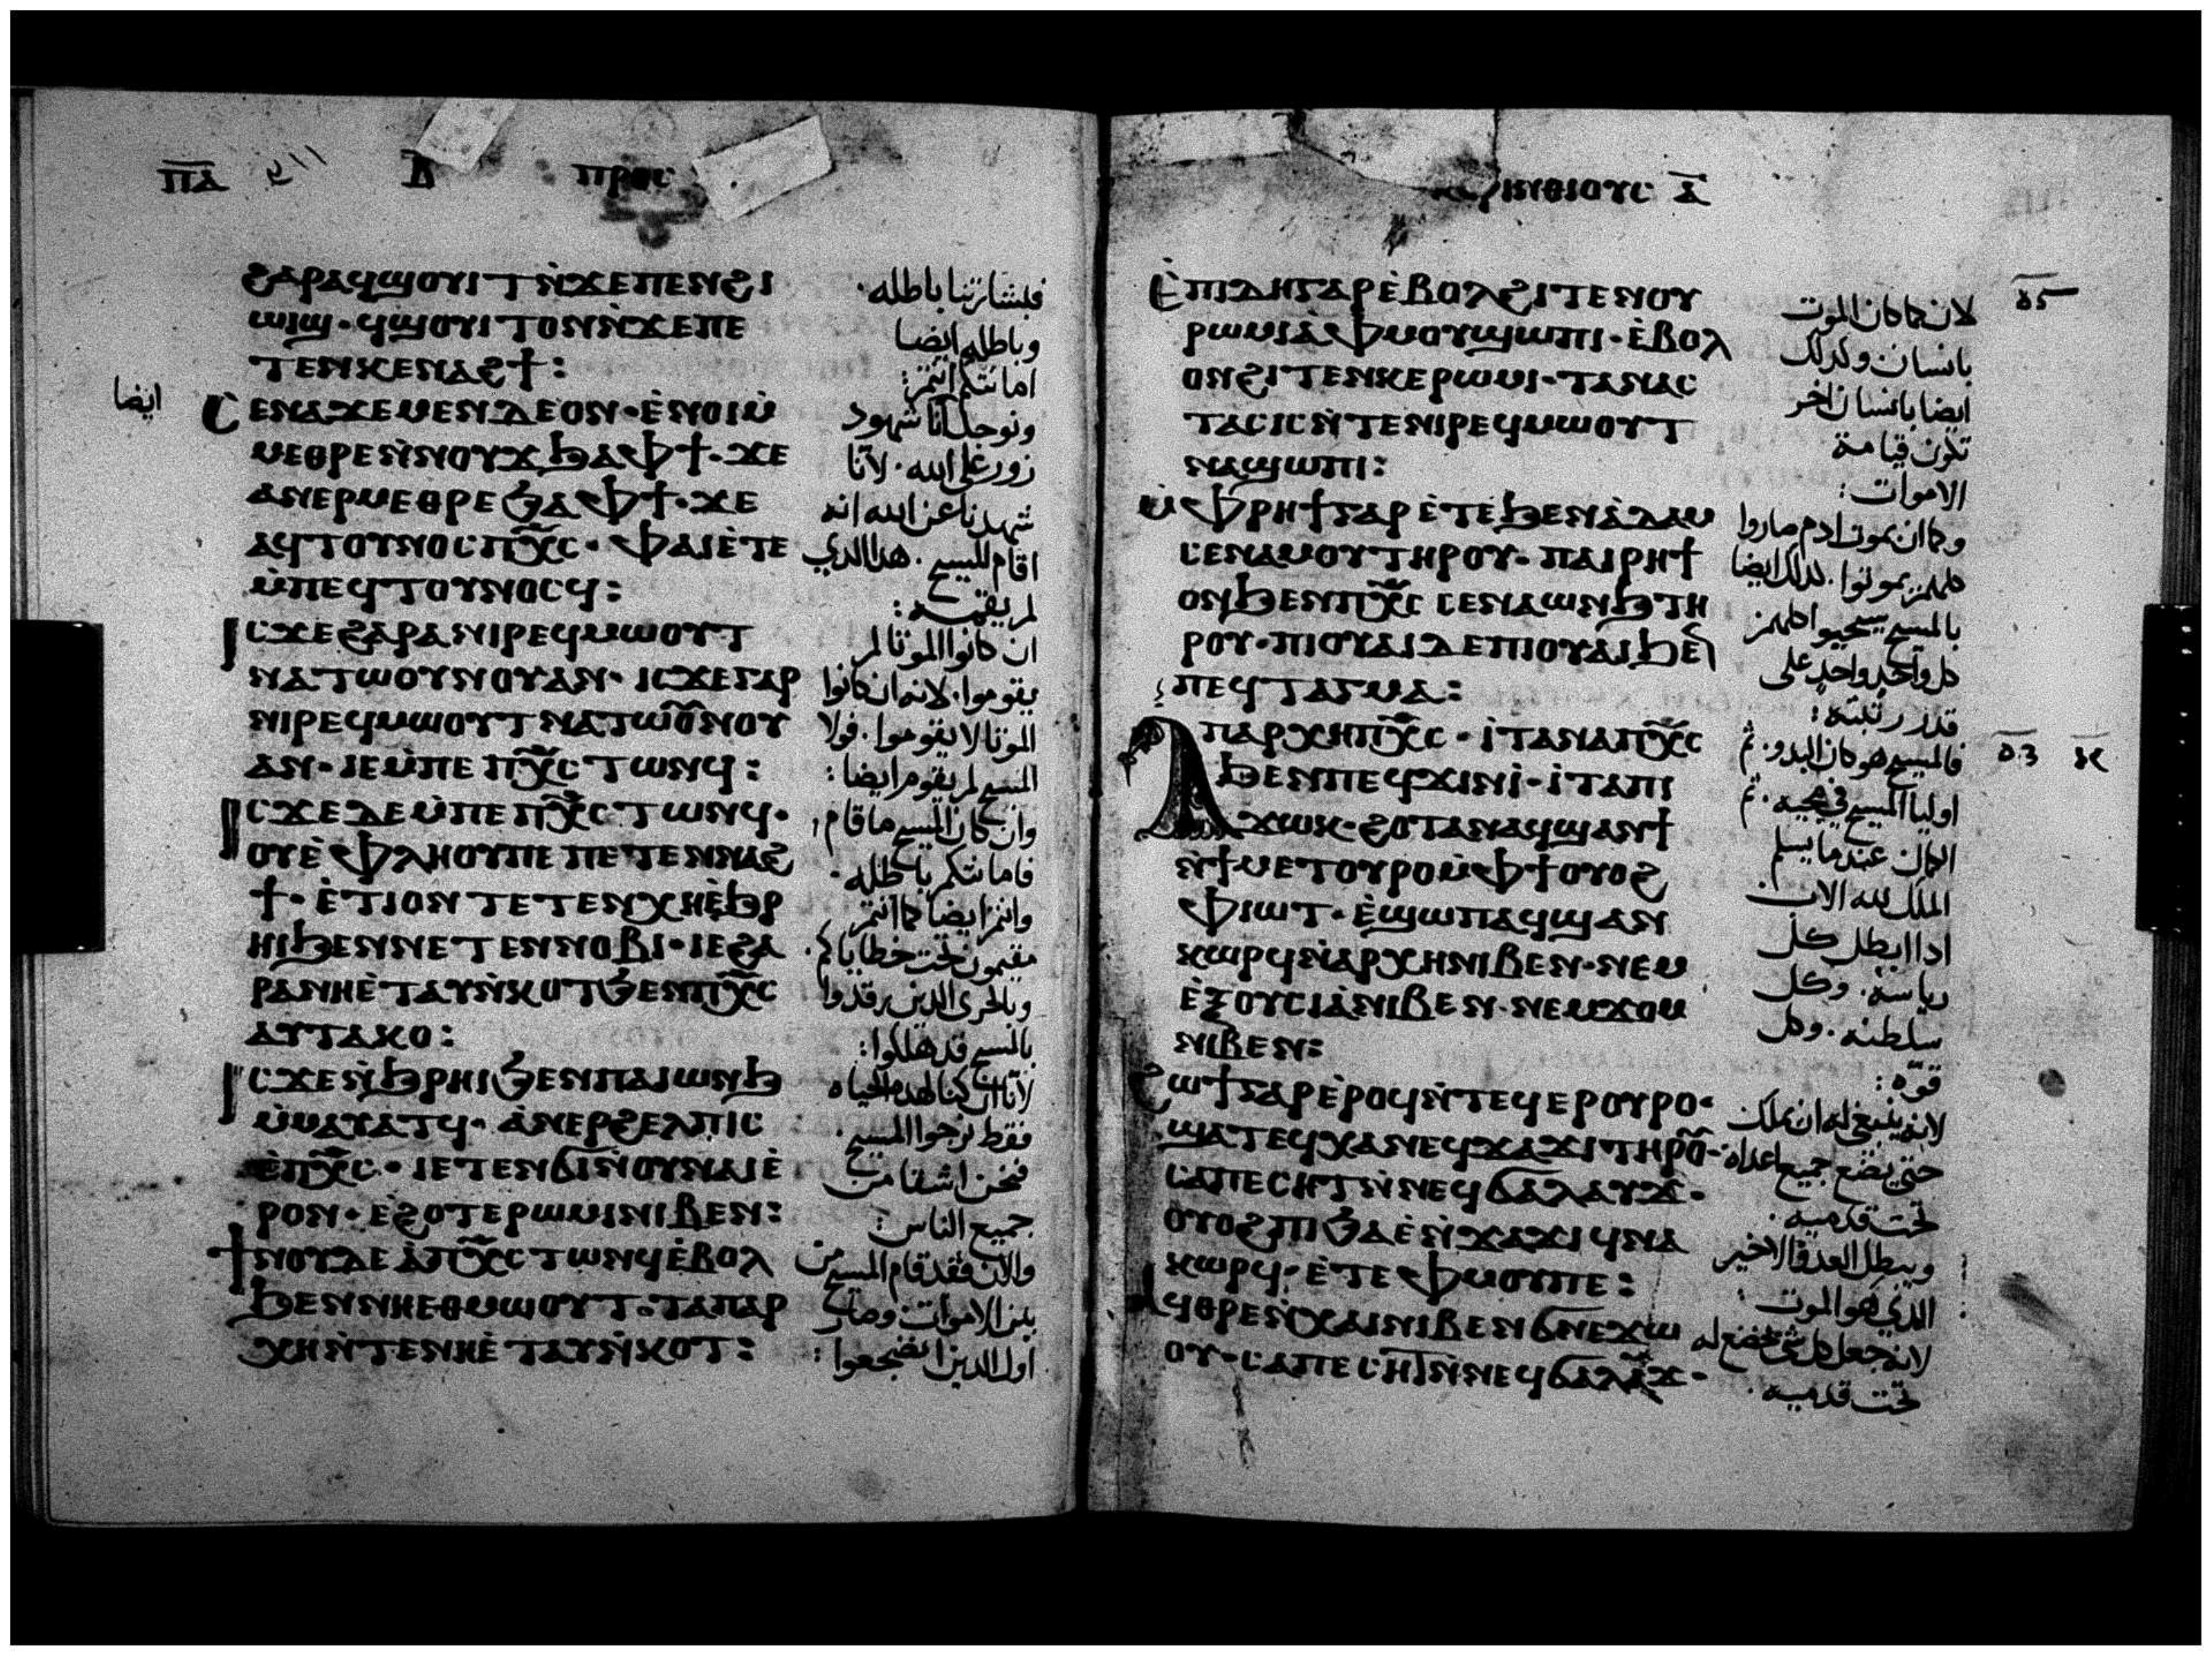 ⲡⲁ
ⲡⲣⲟⲥ
ϩⲁⲣⲁϥϣⲟⲩⲓⲧⲛ̀ϫⲉⲡⲉⲛϩⲓ
ⲱⲓϣ · ϥϣⲟⲩⲓⲧⲟⲛⲛ̀ϫⲉⲡⲉ
ⲧⲉⲛⲕⲉⲛⲁϩϯ :
ⲥⲉⲛⲁϫⲉⲙⲉⲛⲇⲉⲟⲛ · ⲉ̀ⲛⲟⲓⲙ̀
ⲙⲉⲑⲣⲉⲛ̀ⲛⲟⲩϫϧⲁⲫϯ · ϫⲉ
ⲁⲛⲉⲣⲙⲉⲑⲣⲉϧⲁⲫϯ · ϫⲉ
ⲁϥⲧⲟⲩⲛⲟⲥⲡⲭ̅ⲥ · ⲫⲁⲓⲉ̀ⲧⲉ
ⲙ̀ⲡⲉϥⲧⲟⲩⲛⲟⲥϥ :
ⲓⲥϫⲉϩⲁⲣⲁⲛⲓⲣⲉϥⲙⲱⲟⲩⲧ
ⲛⲁⲧⲱⲟⲩⲛⲟⲩⲁⲛ · ⲓⲥϫⲉⲅⲁⲣ
ⲛⲓⲣⲉϥⲙⲱⲟⲩⲧⲛⲁⲧⲱⲟ̅ⲛⲟⲩ
ⲁⲛ · ⲓⲉⲙ̀ⲡⲉ ⲡⲭ̅ⲥⲧⲱⲛϥ :
ⲓⲥϫⲉⲇⲉⲙ̀ⲡⲉ ⲡⲭ̅ⲥⲧⲱⲛϥ ·
ⲟⲩⲉ̀ⲫⲗⲏⲟⲩⲡⲉ ⲡⲉⲧⲉⲛⲛⲁϩ
ϯ · ⲉ̀ⲧⲓⲟⲛ ⲧⲉⲧⲉⲛⲭⲏⲉ̀ϧⲣ
ⲏⲓϧⲉⲛⲛⲉⲧⲉⲛⲛⲟⲃⲓ · ⲓⲉϩⲁ
ⲣⲁⲛⲏⲉ̀ⲧⲁⲩⲛ̀ⲕⲟⲧϧⲉⲛⲡⲭ̅ⲥ
ⲁⲩⲧⲁⲕⲟ :
ⲓⲥϫⲉⲛ̀ϧⲣⲏⲓϧⲉⲛⲡⲁⲓⲱⲛϧ
ⲙ̀ⲙⲁⲩⲁⲧϥ · ⲁ̀ⲛⲉⲣϩⲉⲗⲡⲓⲥ
ⲉ̀ⲡⲭ̅ⲥ · ⲓⲉⲧⲉⲛϭⲓⲛ̀ⲟⲩⲛⲁⲓⲉ̀
ⲣⲟⲛ · ⲉ̀ϩⲟⲧⲉⲣⲱⲙⲓⲛⲓⲃⲉⲛ :
ϯⲛⲟⲩⲇⲉⲁ̀ⲡⲭ̅ⲥⲧⲱⲛϥⲉ̀ⲃⲟⲗ
ϧⲉⲛⲛⲏⲉⲑⲙⲱⲟⲩⲧ · ⲧⲁⲡⲁⲣ
ⲭⲏⲛ̀ⲧⲉⲛⲏⲉ̀ⲧⲁⲩⲛ̀ⲕⲟⲧ :
ايضا
فبشارتنا باطله ·
وباطله ايضا
امانتكم انتم :
ونوجد انا شهود
زور على الله · لاننا
شهدنا عن الله انه
اقام المسيح · هدا الدي
لم يقيمه :
ان كانوا الموتا لم
يقوموا · لانه ان كانوا
الموتا لا يقوموا · فولا
المسيح لم يقوم ايضا :
وان كان المسيح ما قام ·
فامانتكم باطله ·
وانتم ايضا كما انتم
مقيمون تحت خطاياكم ·
وبالحرى الدين رقدوا
بالمسيح قد هلكوا :
لاننا ان كنا لهده الحياه
فقط نرجوا المسيح ·
فنحن اشقا من
جميع الناس :
والان فقد قام المسيح من
بين الاموات · وصار
اول الدين انضجعوا :
ⲣⲓⲛⲑⲓⲟⲩⲥ ⲁ̅
ⲉ̀ⲡⲓⲇⲏⲅⲁⲣⲉ̀ⲃⲟⲗϩⲓⲧⲉⲛⲟⲩ
ⲣⲱⲙⲓⲁ̀ⲫⲙⲟⲩϣⲱⲡⲓ · ⲉ̀ⲃⲟⲗ
ⲟⲛϩⲓⲧⲉⲛⲕⲉⲣⲱⲙⲓ · ⲧⲁⲛⲁⲥ
ⲧⲁⲥⲓⲥⲛ̀ⲧⲉⲛⲓⲣⲉϥⲙⲱⲟⲩⲧ
ⲛⲁϣⲱⲡⲓ :
ⲙ̀ⲫⲣⲏϯⲅⲁⲣⲉ̀ⲧⲉϧⲉⲛⲁ̀ⲇⲁⲙ
ⲥⲉⲛⲁⲙⲟⲩⲧⲏⲣⲟⲩ · ⲡⲁⲓⲣⲏϯ
ⲟⲛϧⲉⲛⲡⲭ̅ⲥ ⲥⲉⲛⲁⲱⲛϧⲧⲏ
ⲣⲟⲩ · ⲡⲓⲟⲩⲁⲓⲇⲉⲡⲓⲟⲩⲁⲓϧⲉⲛ
ⲡⲉϥⲧⲁⲅⲙⲁ :
ⲁⲡⲁⲣⲭⲏⲡⲭ̅ⲥ · ⲓ̀ⲧⲁⲛⲁⲡⲭ̅ⲥ
ϧⲉⲛⲡⲉϥϫⲓⲛⲓ̀ · ⲓ̀ⲧⲁⲡⲓ
ϫⲱⲕ · ϩⲟⲧⲁⲛⲁϥϣⲁⲛϯ
ⲛ̀ϯⲙⲉⲧⲟⲩⲣⲟⲙ̀ⲫϯⲟⲩⲟϩ
ⲫⲓⲱⲧ · ⲉ̀ϣⲱⲡⲁϥϣⲁⲛ
ⲕⲱⲣϥⲛ̀ⲁⲣⲭⲏⲛⲓⲃⲉⲛ · ⲛⲉⲙ
ⲉ̀ⲝⲟⲩⲥⲓⲁ̀ⲛⲓⲃⲉⲛ · ⲛⲉⲙϫⲟⲙ
ⲛⲓⲃⲉⲛ :
ϩⲱϯⲅⲁⲣⲉ̀ⲣⲟϥⲛ̀ⲧⲉϥⲉⲣⲟⲩⲣⲟ ·
ϣⲁⲧⲉϥⲭⲁⲛⲉϥϫⲁϫⲓⲧⲏⲣⲟ̅ ·
ⲥⲁⲡⲉⲥⲏⲧⲛ̀ⲛⲉϥϭⲁⲗⲁⲩϫ ·
ⲟⲩⲟϩⲡⲓϧⲁⲉ̀ⲛ̀ϫⲁϫⲓϥⲛⲁ
ⲕⲱⲣϥ · ⲉ̀ⲧⲉⲫⲙⲟⲩⲡⲉ :
ⲁϥⲑⲣⲉⲛ̀ⲭⲁⲓⲛⲓⲃⲉⲛϭⲛⲉϫⲱ
ⲟⲩ · ⲥⲁⲡⲉⲥⲏⲧⲛ̀ⲛⲉϥϭⲁⲗⲁⲩϫ ·
لان كما كان الموت
بانسان · وكدلك
ايضا بانسان اخر
تكون قيامة
الاموات :
وكما ان بموت ادم صاروا
كلهم يموتوا · كدلك ايضا
بالمسيح يسحيوا كلهم
كل واحد واحد على
قدر رتبته :
فالمسيح هو كان البدو · ثم
اوليا المسيح في مجيه · ثم
الكمال عندما يسلم
الملك لله الاب
ادا ابطل كل
رياسة · وكل
سلطنه · وكل
قوه :
لانه ينبغي له ان يملك
حتى يضع جميع اعداه
تحت قدميه ·
ويبطل العدو الاخير
الدي هو الموت :
لانه جعل كل شي يخضع له
تحت قدميه ·